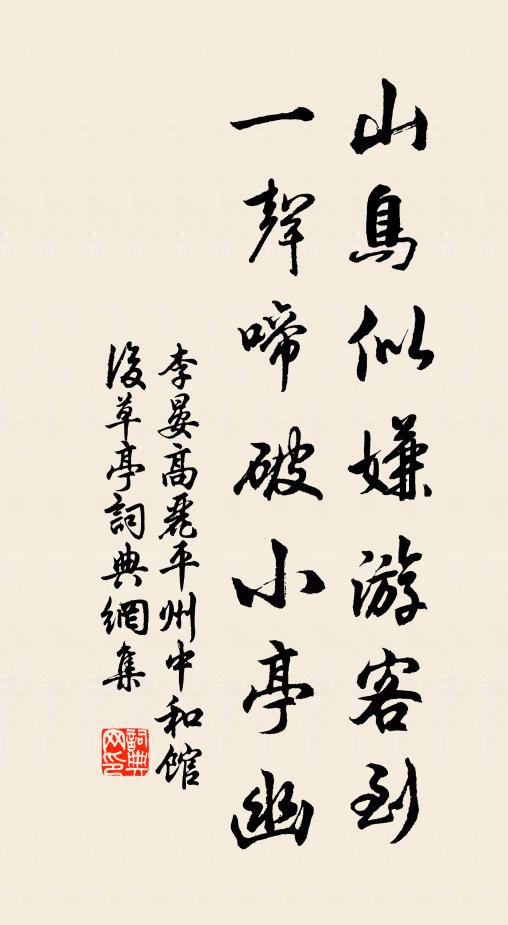 山鳥似嫌游客到
一聲啼破小亭幽
李晏高麗平州中和館
後草亭詞典網集
詞典
网印